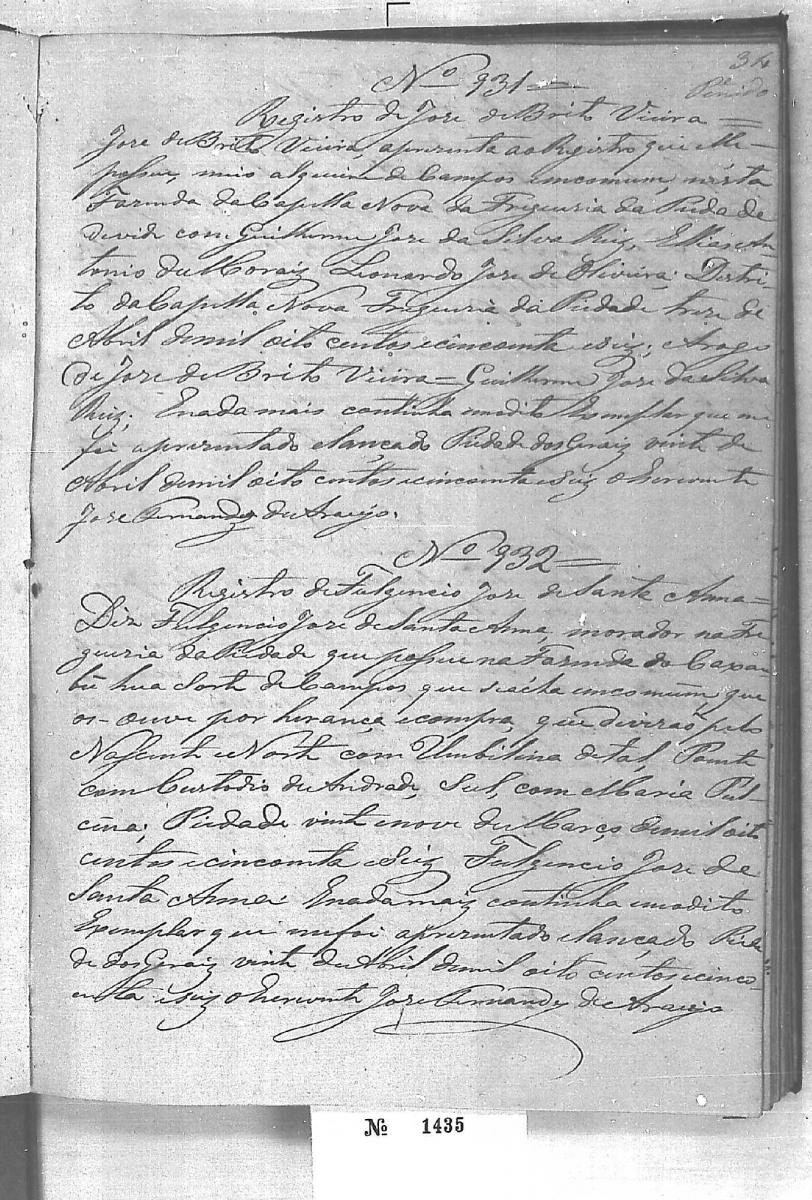 34
Penido
Nº 931=
Registro de Jose de Brito Vieira=
Jose de Brito Vieira, aprezenta ao Registro que elle
possue, meio alqueire de Campos emcomum, nesta
Fazenda da Capella Nova da Freguezia da Piedade
devide com Guilherme Jose da Silva Reiz, Elias An-
tonio de Moraiz Leonardo Jose de Oliveira; Destri-
to da Capella Nova Freguezia da Piedade treze de
Abril demil oito centos ecincoenta eseiz; Arogo
de Jose de Brito Vieira= Guilherme Jose da Silva
Reiz; Enada mais continha emodito Exemplar que me
foi aprezentado elançado Piedade dos Geraiz vinte de
Abril demil oito centos ecincoenta eseiz oEscrevente
Jose Fernandz de Araujo.
Nº 932=
Registro de Fulgencio Jose de Santa Anna=
Diz Fulgencio Jose de Santa Anna, morador na Fre
guezia da Piedade que possue na Fazenda do Caxam-
bú hua Sorte de Campos que seácha emcomum, que
os-ouve por herança ecompra, que devizaõ pelo
Nascente eNorte com Umbilina de tal Poente
com Custodio de Andrade, Sul, com Maria Pul-
cina; Piedade vinte enove de Março demil oito
centos ecincoenta eSeiz Fulgencio Jose de
Santa Anna: Enadamaiz continha emodito
Exemplar que mefoi aprezentado elançado Pieda
de dos Geraiz vinte de Abril demil oito centos ecinco-
enta eseiz oEscrevente Jose Fernandz de Araujo
Nº 1435